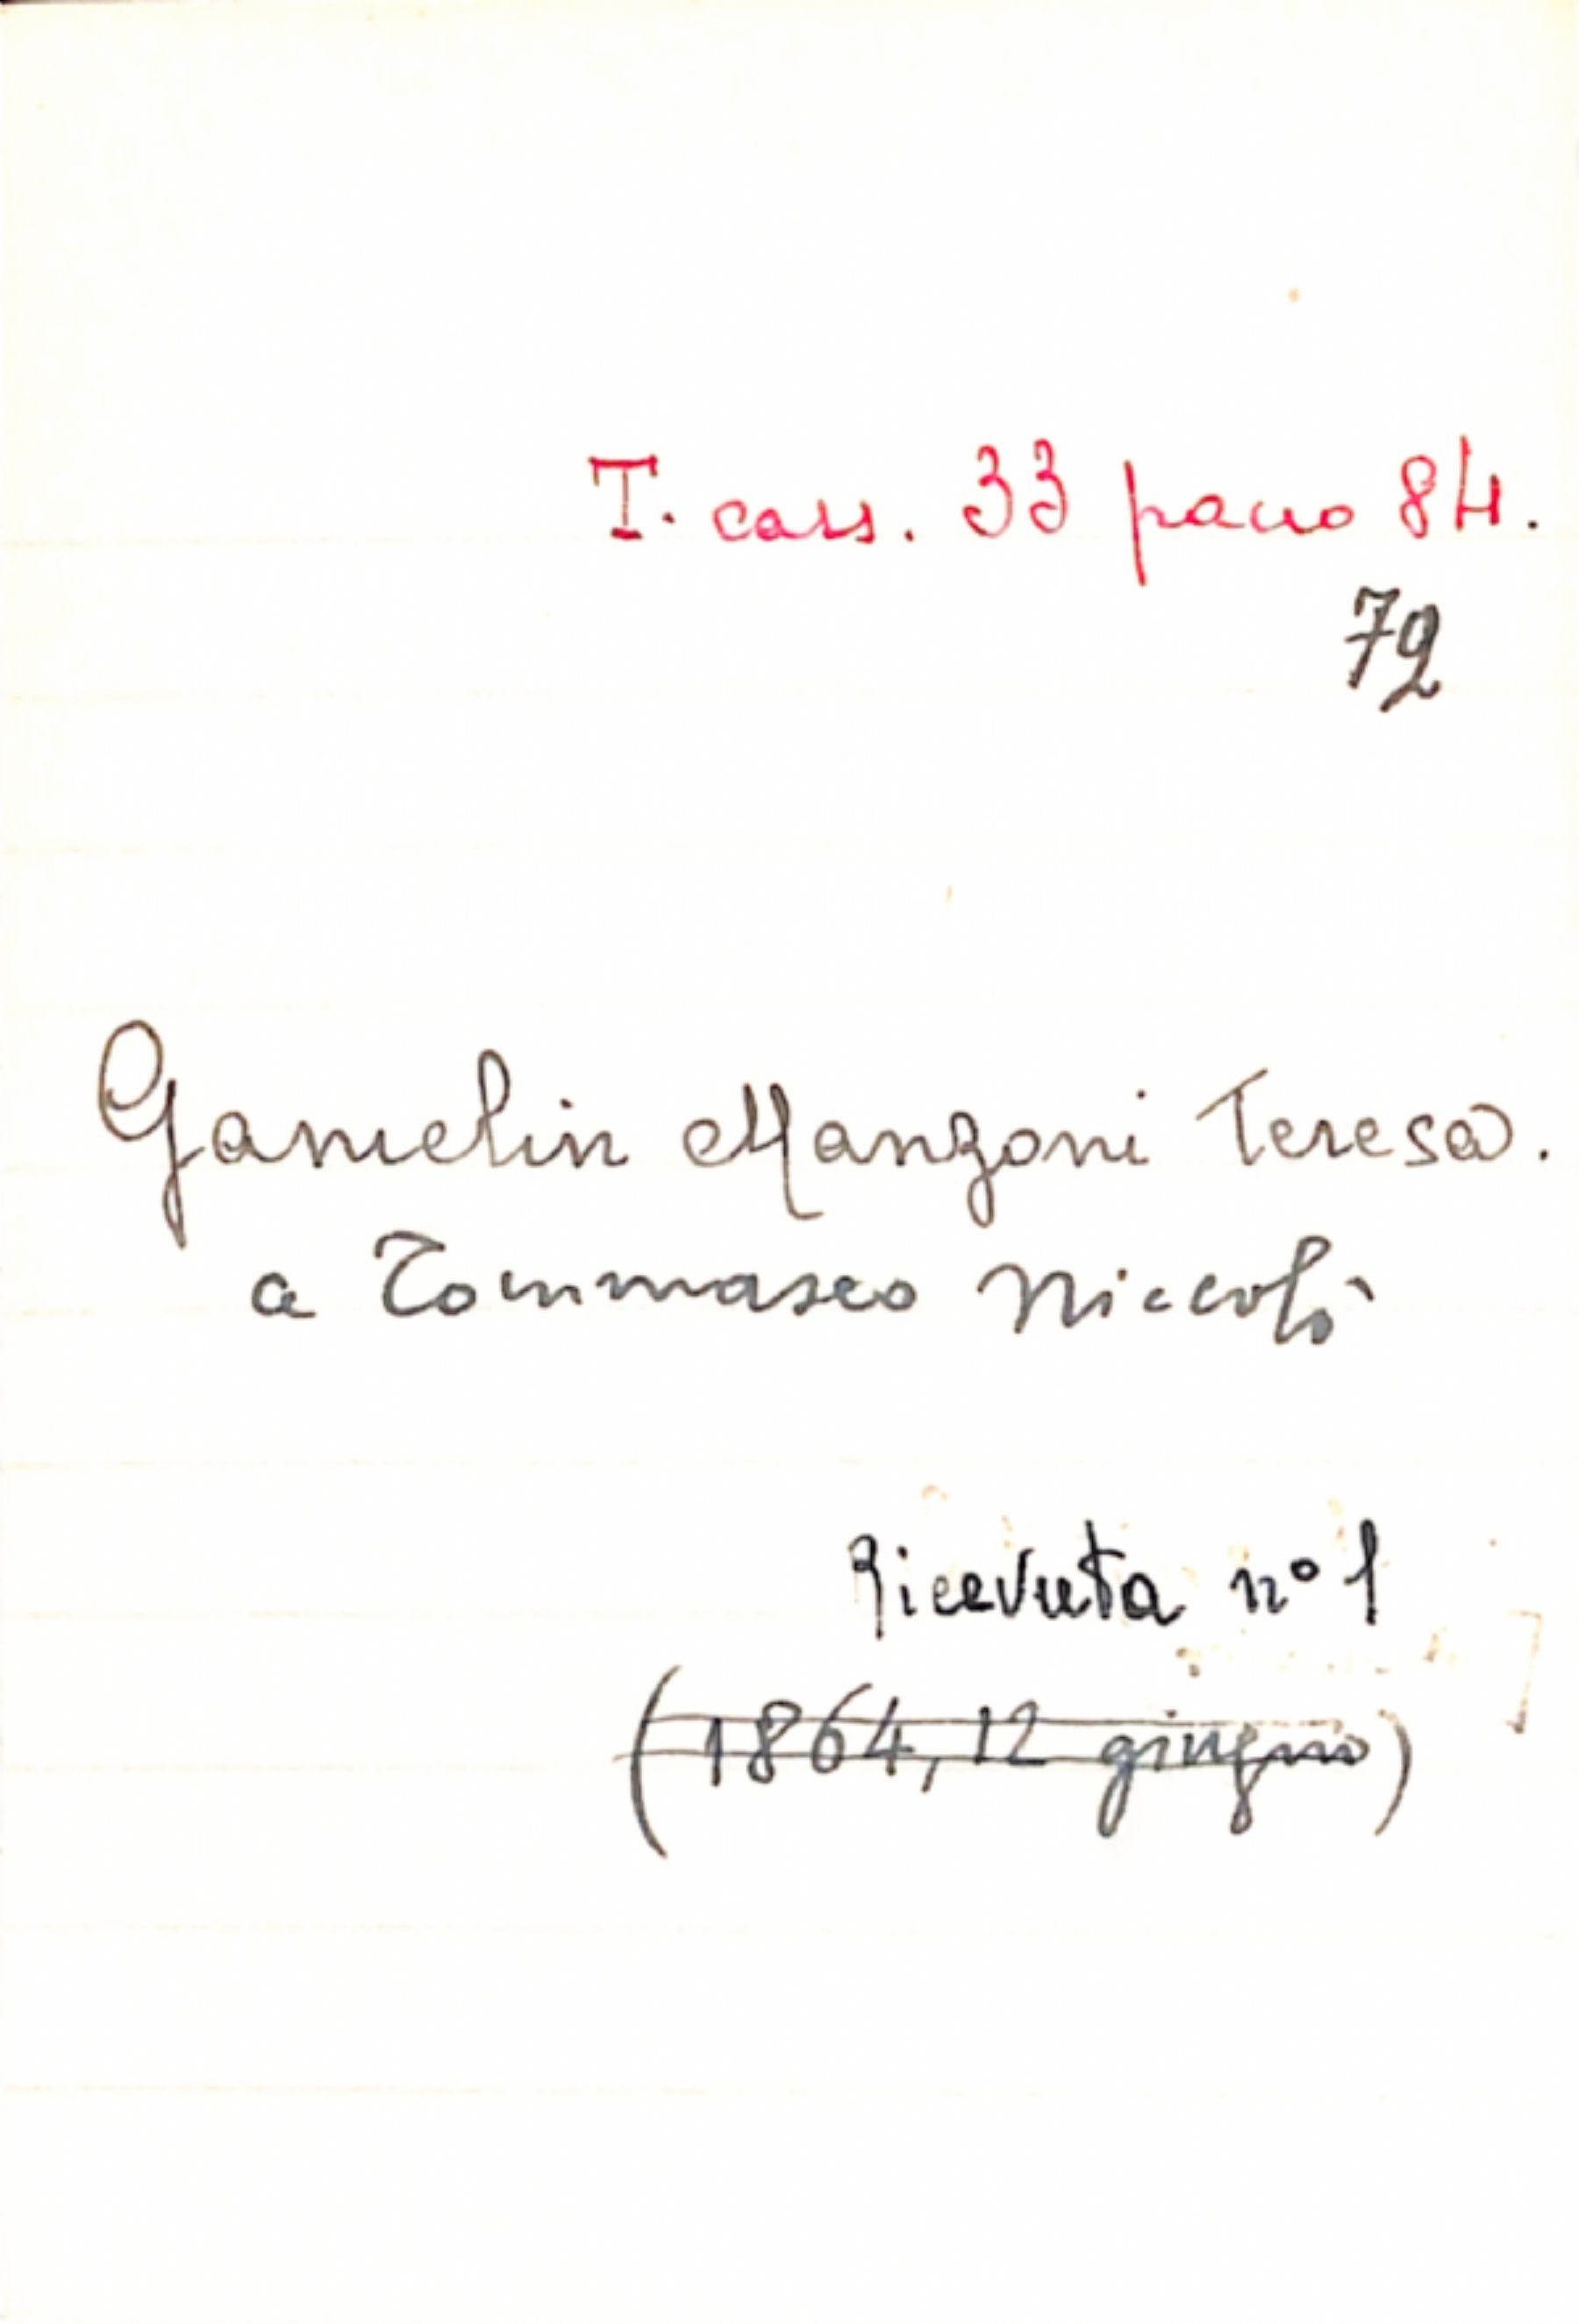 T. cass. 33 pacco 84.
72
Gamelin Manzoni Teresa.
a Tommaseo Niccolò
Ricevuta n° 1
(1864, 12 giugno)